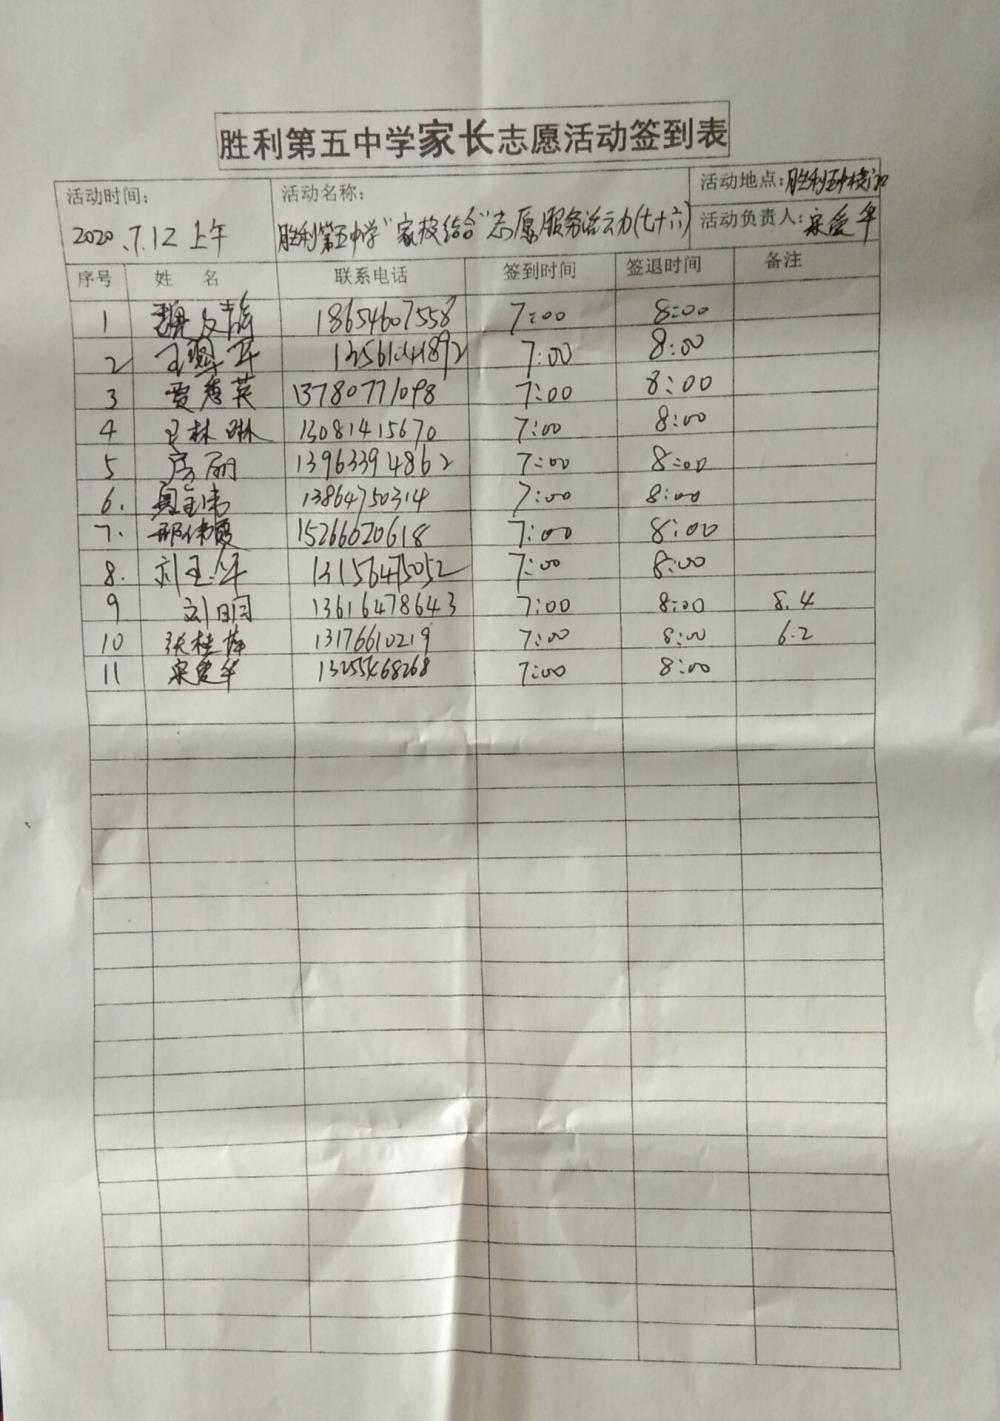 胜利第五中学家长志愿活动签到表
活动时间: 活动名称: 活动地点:胜利五中校门口
2020.7.12 上午 胜利第五中学"家校结合"志愿服务活动(七十六) 活动负责人:宋爱华
序号 姓 名 联系电话 签到时间 签退时间 备注
1 18654607558 7:00 8:00
2 13561041892 7:00 8:00
3 贾惠英 13780771098 7:00 8:00
4 王林琳 13081415670 7:00 8:00
5 房丽 13963394862 7:00 8:00
6. 13864750314 7:00 8:00
7. 邢伟霞 15266620618 7:00 8:00
8. 刘玉华 13156475052 7:00 8:00
9 刘日闫 13616478643 7:00 8:00 8.4
10 张桂梅 13176610219 7:00 8:00 6.2
11 宋爱华 13255468268 7:00 8:00